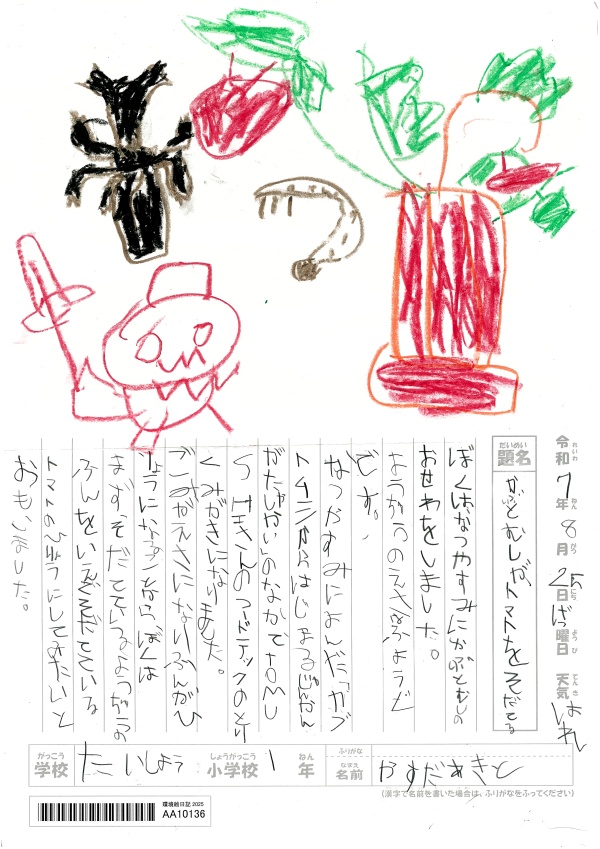 令和7年8月25日げつ曜日 天気 はれ
れいわ ねん がつ にち ようび てんき
だいめい
題名
かぶとむしが、トマトをそだてる
ぼくはなつやすみにかぶとむしの
おせわをしました。
ようちゅうのえさはふようど
です。
なつやすみによんだ「カブ
トムシからはじまるじゅんかん
がたしゃかい」のなかでTOMU
SHIさんのフードテックのとり
くみがきになりました。
ごみがえさになりふんがひ
りょうになる。ぼくは
まずそだてているようちゅうの
ふんをいまそだてている
トマトのひりょうにしてみたいと
おもいました。
がっこう
学校
たいしょう
しょうがっこう
小学校
1
ねん
年
ふりがな
なまえ
名前
やすだあきと
(漢字で名前を書いた場合は、ふりがなをふってください)
環境絵日記 2025
AA10136